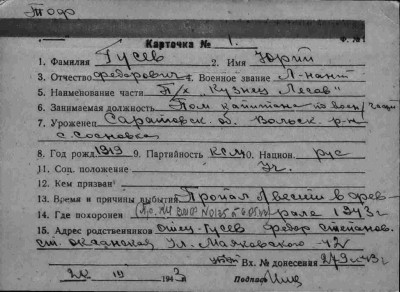 Тоф
Карточка № 1. Ф. №
1. Фамилия Гусев 2. Имя Юрий
3. Отчество федорович 4. Военное звание Л-нант
5. Наименование части П/х "Кузнец Лесов"
6. Занимаемая должность Пом. капитана по воен/части
7. Уроженец Саратовск. об. Вольск. р-н
с. Сосновка
8. Год рожд. 1919 9. Партийность ВСЛЮ 10. Национ. рус
11. Соц. положение Уч.
12. Кем призван
13. Время и причины выбытия Пропал б/вести в фев-
14. Где похоронен рале 1943 г
15. Адрес родственников Отец-Гусев Федор Степанов.
ст. Ул. Маяковского 42
Вх. № донесения 279-43 г
20 III 1943 г. Подпись